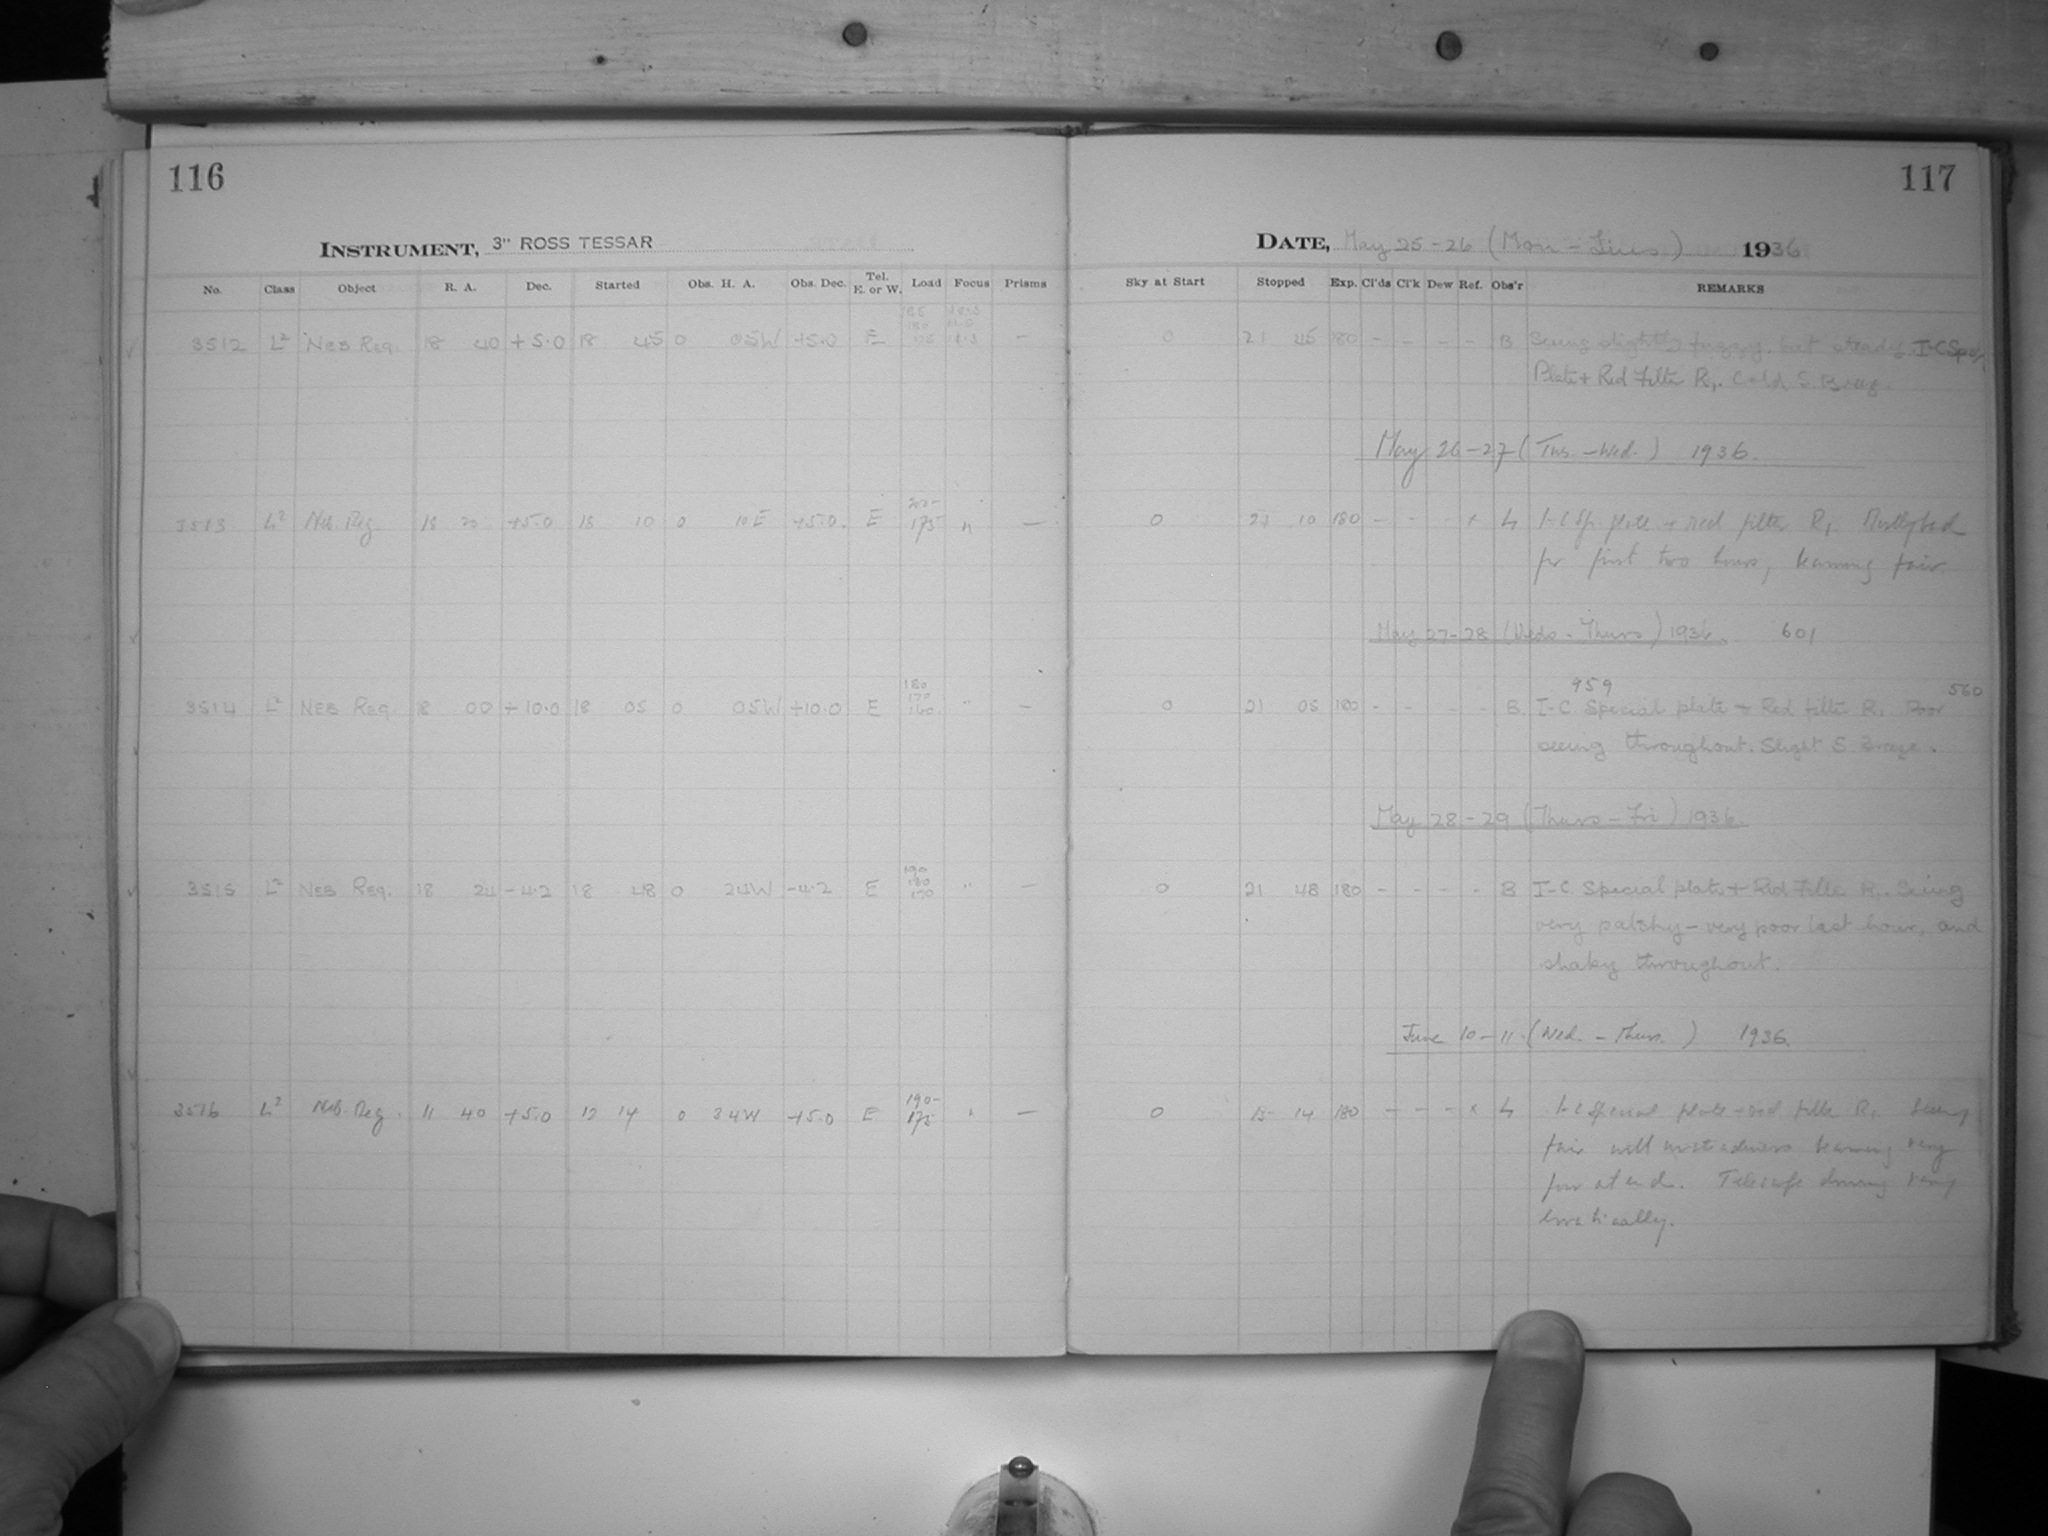 116
117
INSTRUMENT, 3" ROSS TESSAR
DATE, May 25-26 (Mon - Tues) 1936
No. Class Object R. A. Dec. Started Obs. H. A. Obs. Dec. Tel. E. or W. Load Focus Prisms Sky at Start Stopped Exp. Cl'ds Cl'k Dew Ref. Obs'r REMARKS
3512 L² NEB REG. 18 40 +5.0 18 45 0 05W +5.0 E — 0 21 45 180 - - - - B Seeing slightly fuzzy, but steady. I-C Spec.
Plate + Red Filter R₁. Cold S. Breeze.
May 26-27 (Tues. - Wed.) 1936.
3513 L² Neb. Reg. 18 20 +5.0 18 10 0 10E +5.0 E 200- 175 " — 0 21 10 180 - - - x L I-C Sp. plate + red filter R₁. Mostly bad
for first two hours, becoming fair.
May 27-28 (Weds - Thurs) 1936. 601
959 560
3514 L² NEB REG. 18 00 +10.0 18 05 0 05W +10.0 E 180 170 160 " — 0 21 05 180 - - - - B. I-C Special plate + Red filter R₁ Poor
seeing throughout. Slight S. Breeze.
May 28-29 (Thurs - Fri) 1936.
3515 L² NEB REG. 18 24 -4.2 18 48 0 24W -4.2 E 190 180 " — 0 21 48 180 - - - - B I-C Special plate + Red Filter R₁. Seeing
very patchy - very poor last hour, and
shaky throughout.
June 10-11 (Wed. - Thurs.) 1936.
3516 L² Neb. Reg. 11 40 +5.0 12 14 0 34W +5.0 E 190- 175 " — 0 15 14 180 - - - x L I-C Special plate + red filter R₁ Seeing
fair with unsteadiness becoming very
poor at end. Telescope driving very
erratically.